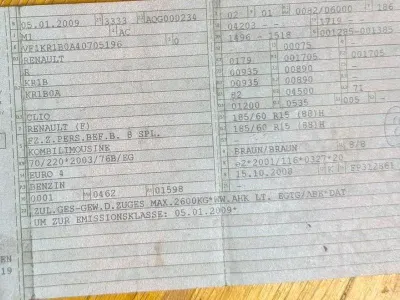 05.01.2009 3333 AQG000234
M1 AC
VF1KR1B0A40705196 0
RENAULT
R
KR1B
KR1B0A
CLIO
RENAULT (F)
FZ.Z.PERS.BEF.B. 8 SPL.
KOMBILIMOUSINE
70/220*2003/76B/EG
EURO 4
BENZIN
0001 0462 01598
ZUL.GES-GEW.D.ZUGES MAX.2600KG*
UM ZUR EMISSIONSKLASSE: 05.01.2009*
02 01 0082/06000 186
04203 - - 1719 -
1496 - 1518 001285-001385
00075
0179 001705 001705
00935 00890 -
00935 00890 -
82 04500 71
01200 0535 005 -
185/60 R15 (88)H
185/60 R15 (88)H
BRAUN/BRAUN 8/8
e2*2001/116*0327*20
15.10.2008
EN
19